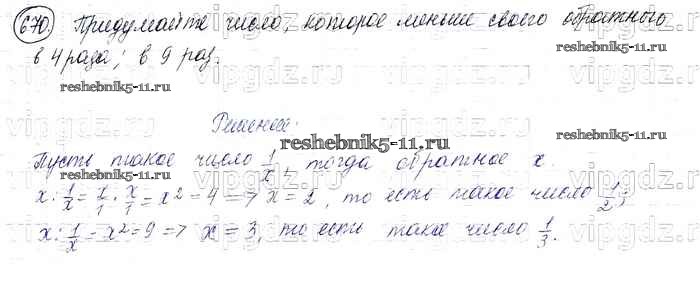 670. Придумайте число, которое меньше своего обратного
в 4 раза; в 9 раз.
reshebnik5-11.ru
reshebnik5-11.ru
Решение:
reshebnik5-11.ru
Пусть такое число 1/x, тогда обратное x.
x : 1/x = x/1 · x/1 = x² = 4 => x = 2, то есть такое число 1/2;
x : 1/x = x² = 9 => x = 3, то есть такое число 1/3.
reshebnik5-11.ru
reshebnik5-11.ru
vipgdz.ru vipgdz.ru vipgdz.ru